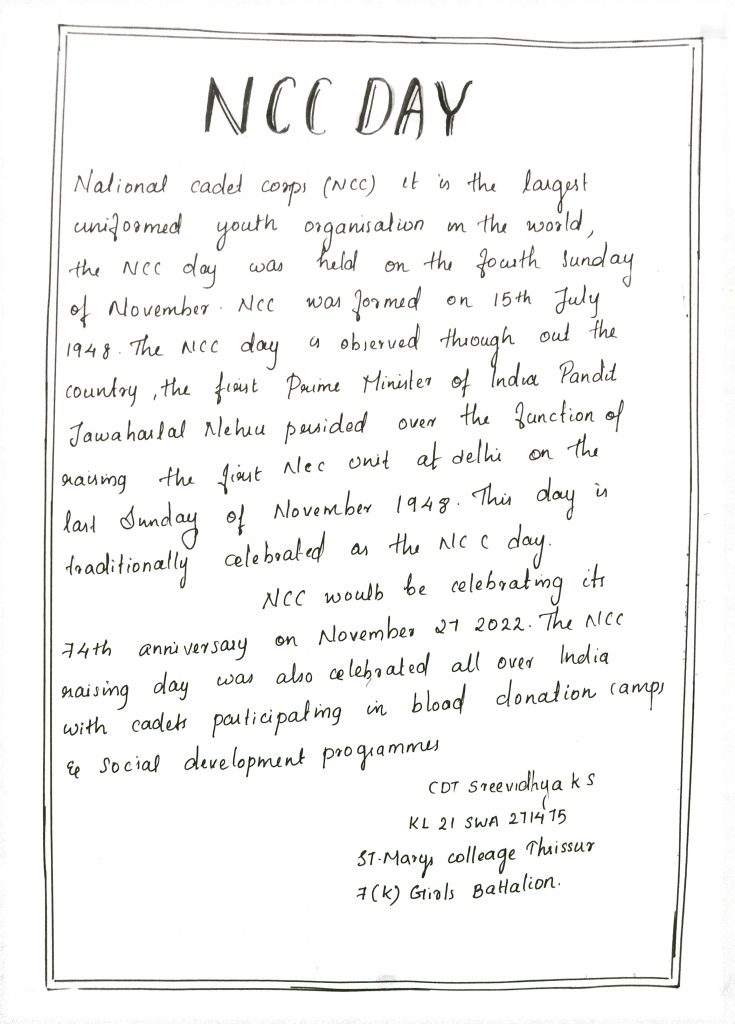 NCC DAY
National cadet corps (NCC) it is the largest
uniformed youth organisation in the world,
the NCC day was held on the fourth Sunday
of November. NCC was formed on 15th July
1948. The NCC day is observed through out the
country, the first Prime Minister of India Pandit
Jawaharlal Nehru persided over the function of
raising the first Ncc unit at delhi on the
last Sunday of November 1948. This day is
traditionally celebrated as the NCC day.
NCC woulb be celebrating its
74th anniversary on November 27 2022. The NCC
raising day was also celebrated all over India
with cadets participating in blood donation camps
& social development programmes
CDT Sreevidhya K S
KL 21 SWA 271475
ST. Marys colleage Thrissur
7(K) Girls Battalion.